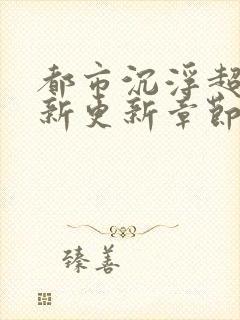 都市沉浮超
新更新章節
臻善